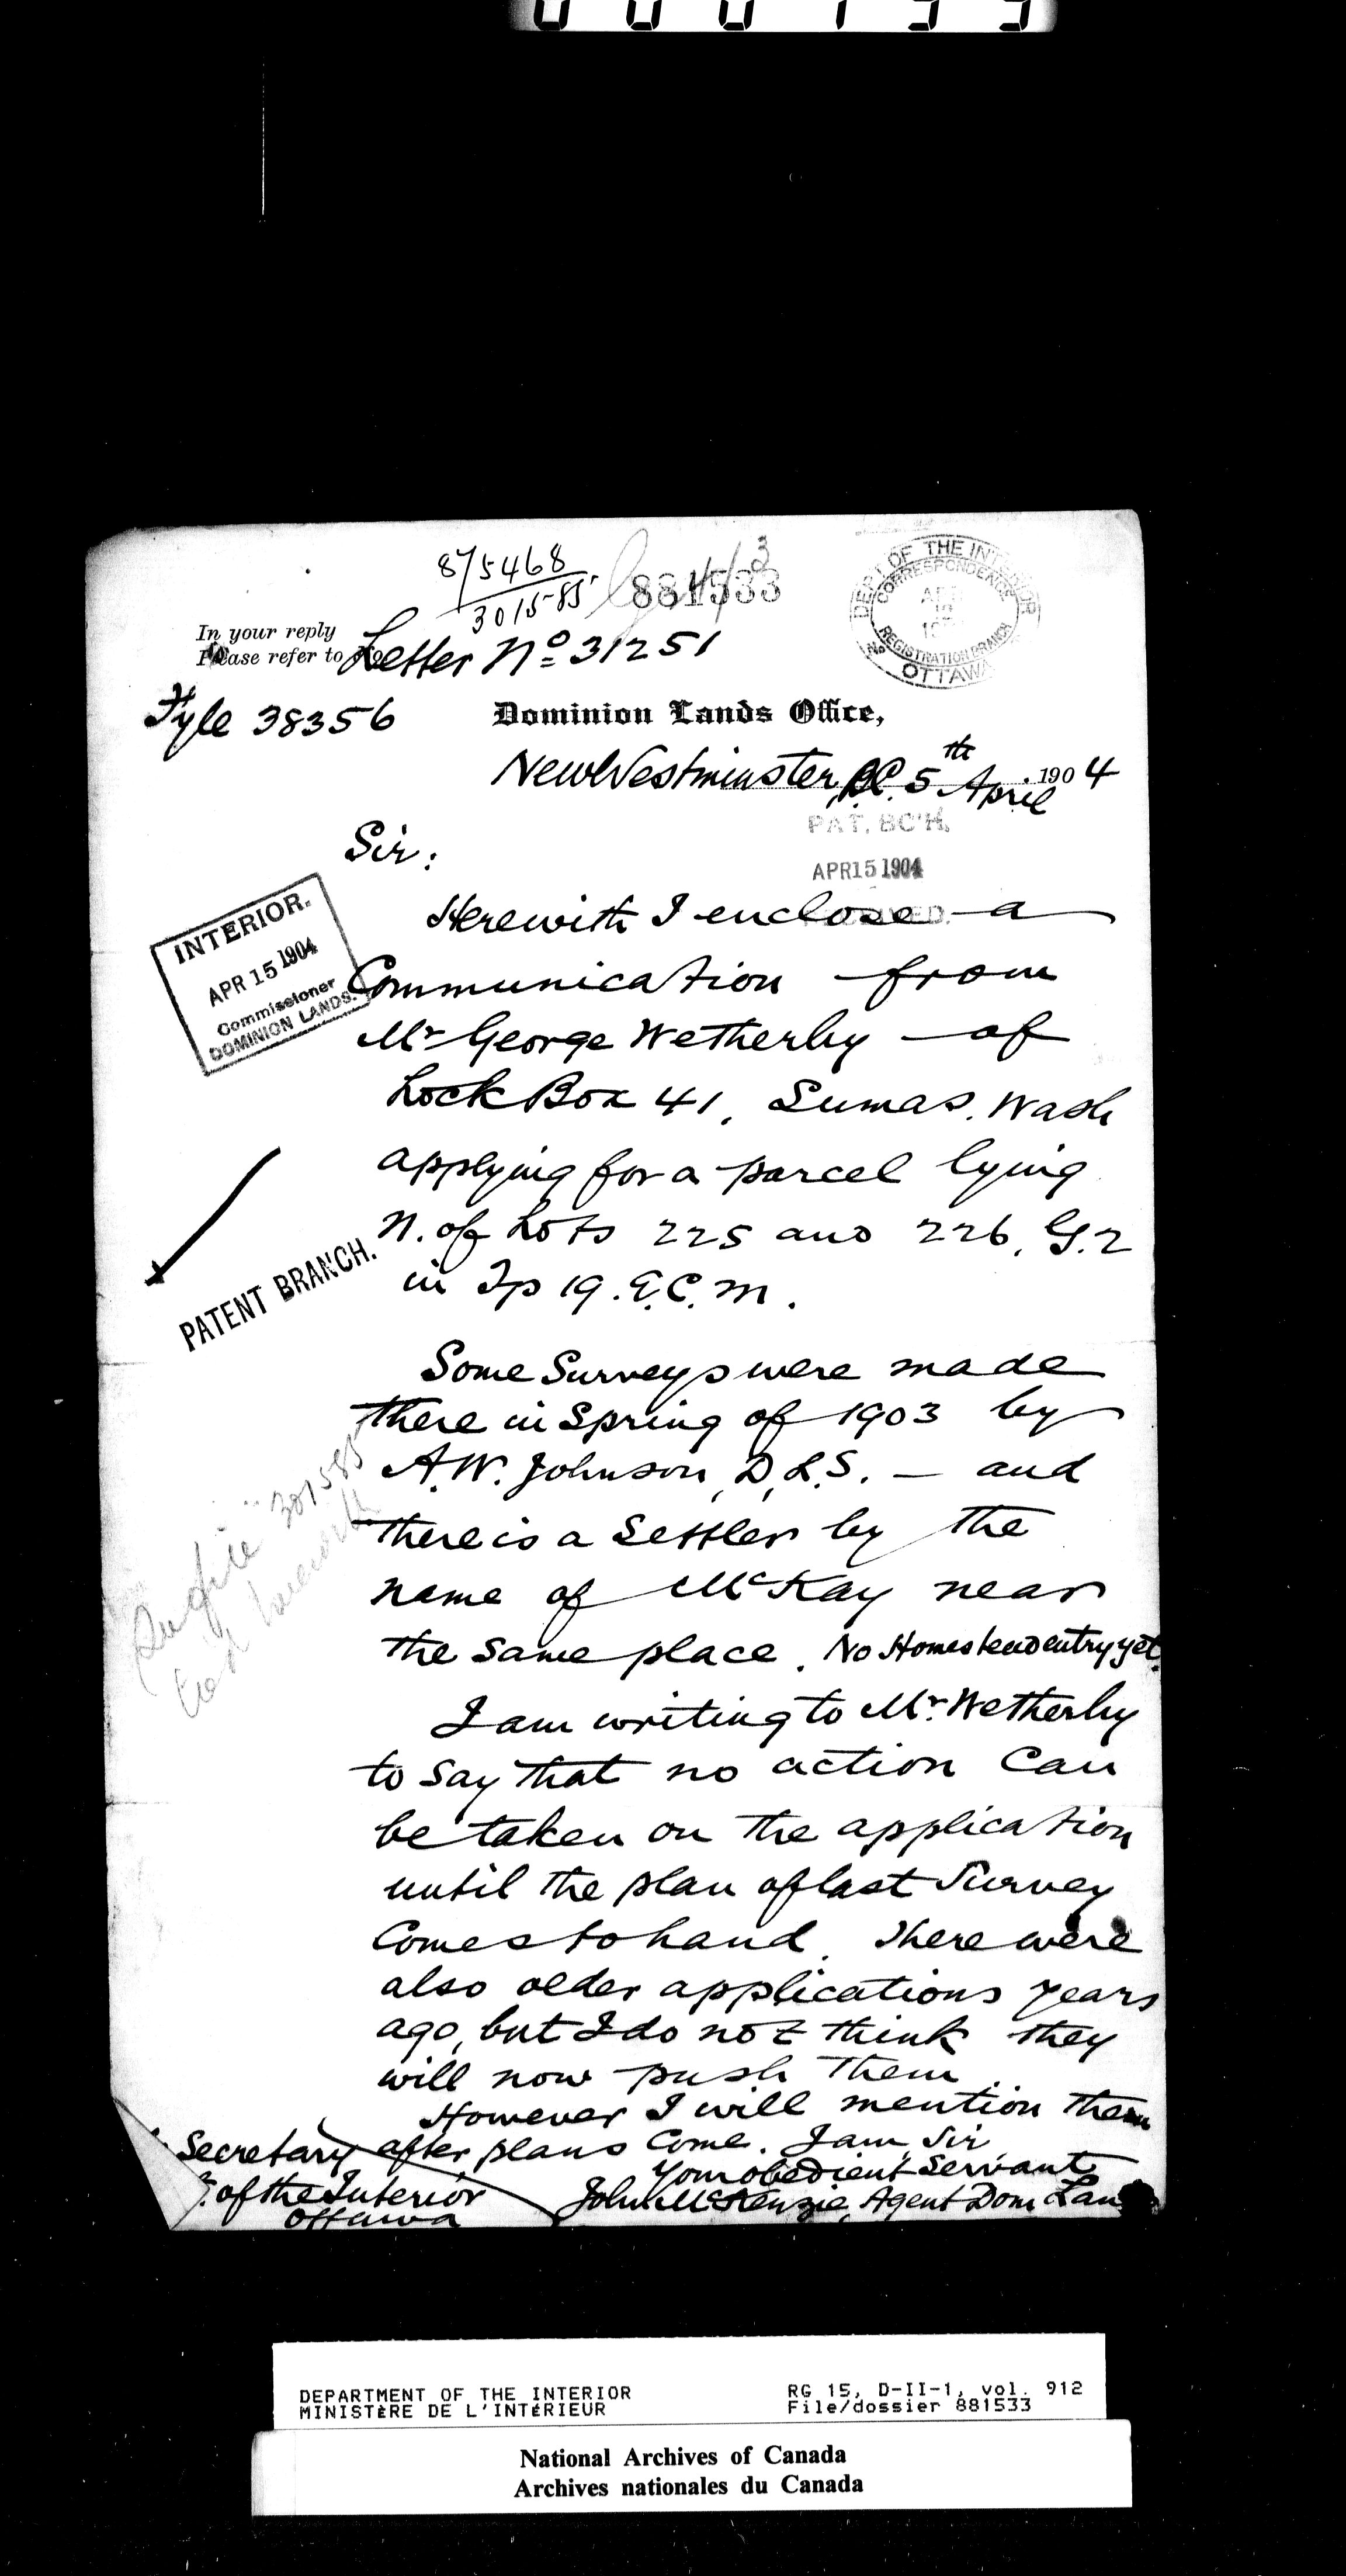 875468
301585
881533
DEP'T OF THE INTERIOR
CORRESPONDENCE
REGISTRATION BRANCH
OTTAWA
In your reply
Please refer to
Letter No 31251
Fyle 38356
Dominion Lands Office,
New Westminster, B.C. 5th April 1904
PAT. BC'H.
APR 15 1904
Sir:
INTERIOR.
APR 15 1904
Commissioner
DOMINION LANDS.
Herewith I enclose a
Communication from
Mr George Wetherby of
Lock Box 41, Sumas. Wash
applying for a parcel lying
N. of Lots 225 and 226, G.2
in Tp 19. E.C.M.
PATENT BRANCH.
Some Surveys were made
there in Spring of 1903 by
A.W. Johnson, D.L.S. — and
there is a Settler by the
name of McKay near
the same place. No Homestead entry yet.
301585
I am writing to Mr. Wetherby
to say that no action can
be taken on the application
until the plan of last Survey
Comes to hand. There were
also older applications years
ago, but I do not think they
will now push them.
However I will mention them
after plans Come. I am, Sir,
Your obedient Servant
John McKenzie, Agent Dom. Lan
Secretary
of the Interior
Ottawa
DEPARTMENT OF THE INTERIOR
MINISTÈRE DE L'INTÉRIEUR
RG 15, D-II-1, vol. 912
File/dossier 881533
National Archives of Canada
Archives nationales du Canada